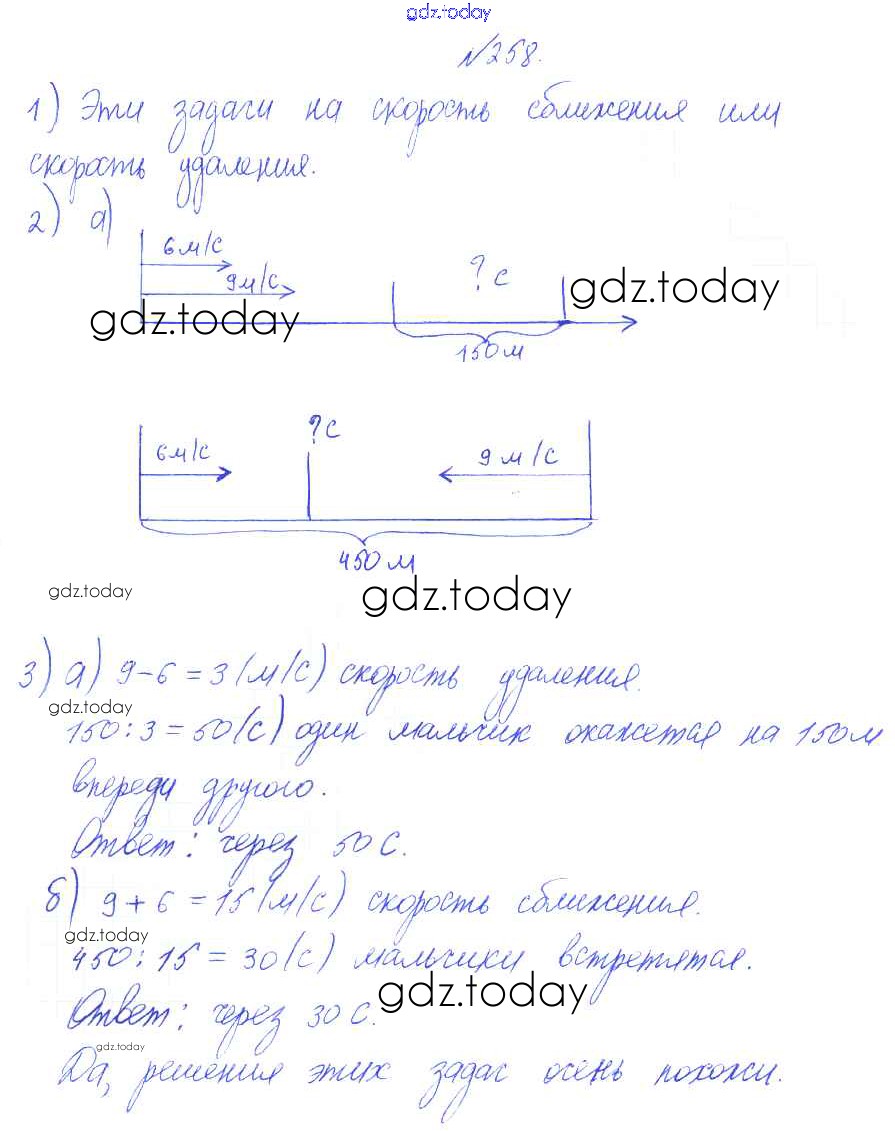 gdz.today
№258.
1) Эти задачи на скорость сближения или
скорость удаления.
2) а)
6 м/с
9 м/с
? с
gdz.today
gdz.today
150 м
? с
6 м/с
9 м/с
450 м
gdz.today
gdz.today
3) а) 9-6 = 3 (м/с) скорость удаления.
gdz.today
150 : 3 = 50 (с) один мальчик окажется на 150 м
впереди другого.
Ответ: через 50 с.
б) 9 + 6 = 15 (м/с) скорость сближения.
gdz.today
450 : 15 = 30 (с) мальчики встретятся.
gdz.today
Ответ: через 30 с.
gdz.today
Да, решения этих задач очень похожи.